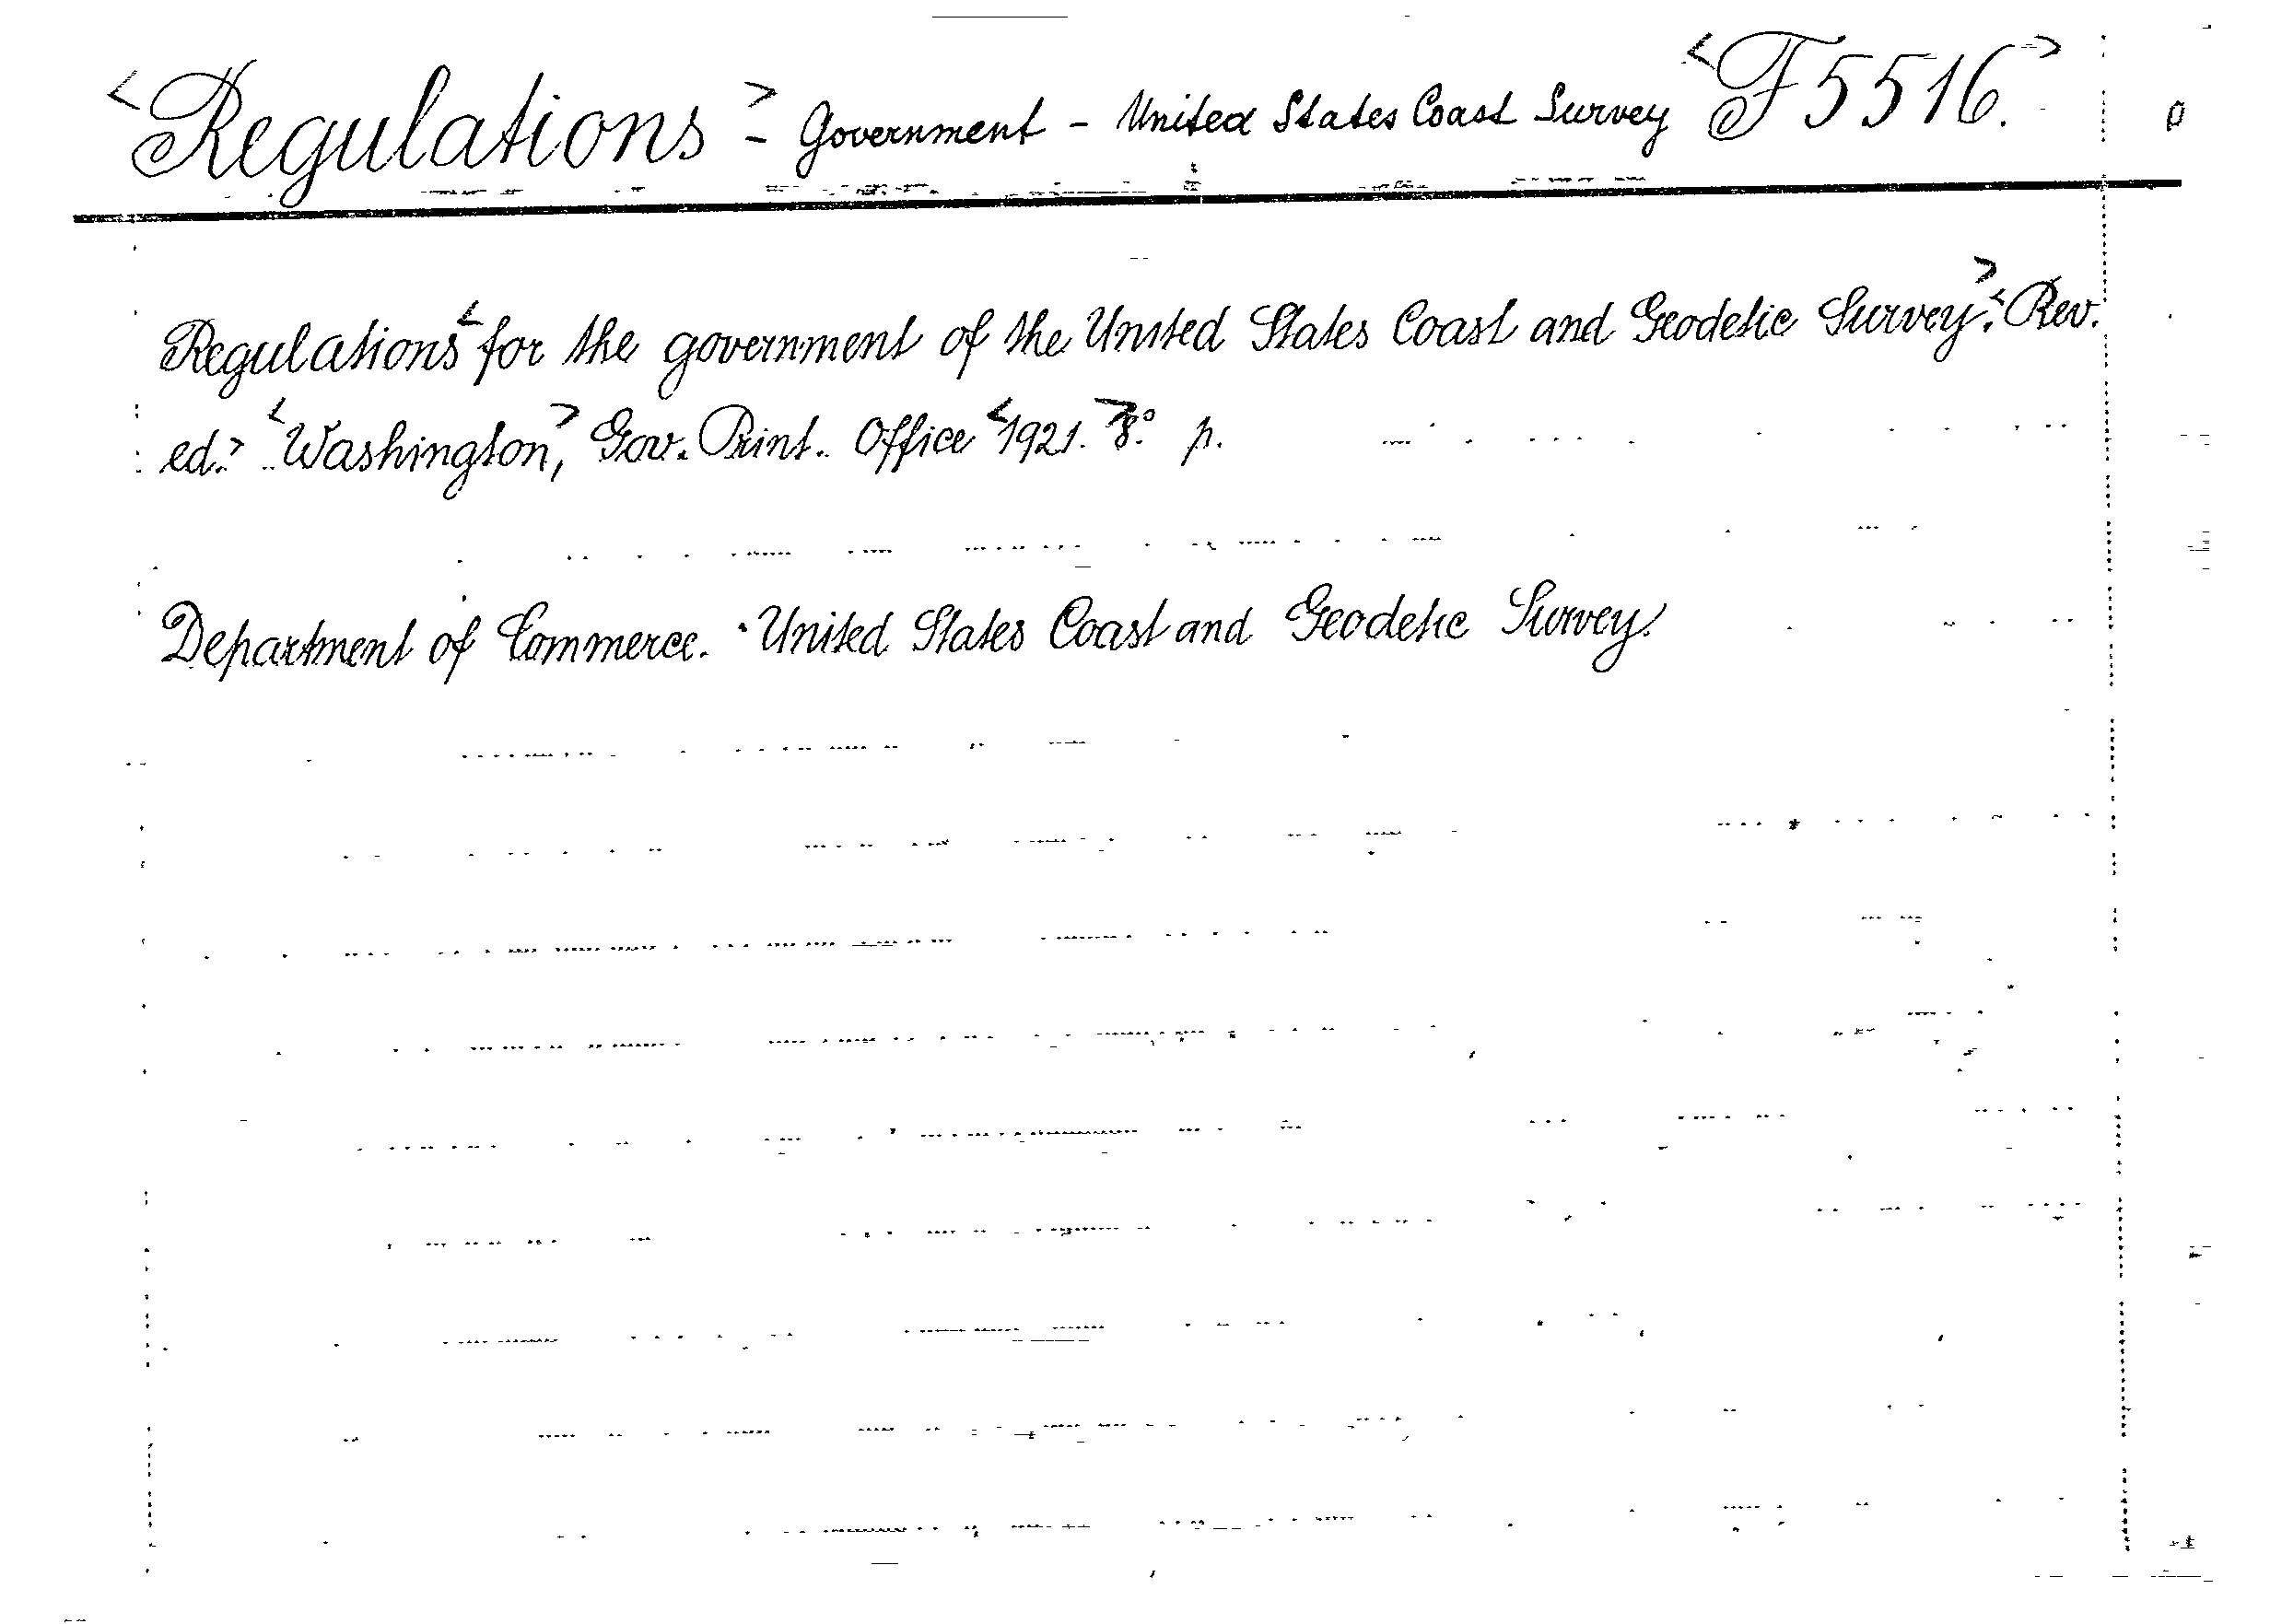 <Regulations> - Government - United States Coast Survey <F5516.>
Regulations <for the government of the United States Coast and Geodetic Survey>. <Rev.
ed.> <Washington>, Gov. Print. Office <1921.> 8.° p.
Department of Commerce. United States Coast and Geodetic Survey.